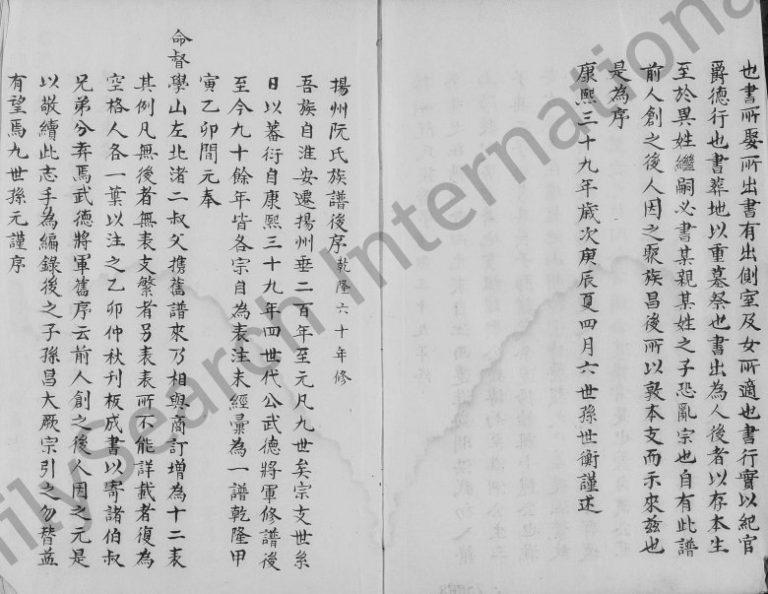 也書所娶所出書有出側室及女所適也書行實以紀官
爵德行也書葬地以重墓祭也書出為人後者以存本生
至於異姓繼嗣必書某親某姓之子恐亂宗也自有此譜
前人創之後人因之聚族昌後所以敦本支而示來茲也
是為序
康熙三十九年歲次庚辰夏四月六世孫世衡謹述
揚州阮氏族譜後序乾隆六十年修
吾族自淮安遷揚州垂二百年至元凡九世矣宗支世系
日以蕃衍自康熙三十九年四世代公武德將軍修譜後
至今九十餘年皆各宗自為表注未經彙為一譜乾隆甲
寅乙卯間元奉
命督學山左北渚二叔父攜舊譜來乃相與商訂增為十二表
其例凡無後者無表支繁者另表表所不能詳載者復為
空格人各一葉以注之乙卯仲秋刊板成書以寄諸伯叔
兄弟分弆焉武德將軍舊序云前人創之後人因之元是
以敬續此志手為編錄後之子孫昌大厥宗引之勿替益
有望焉九世孫元謹序
FamilySearch International